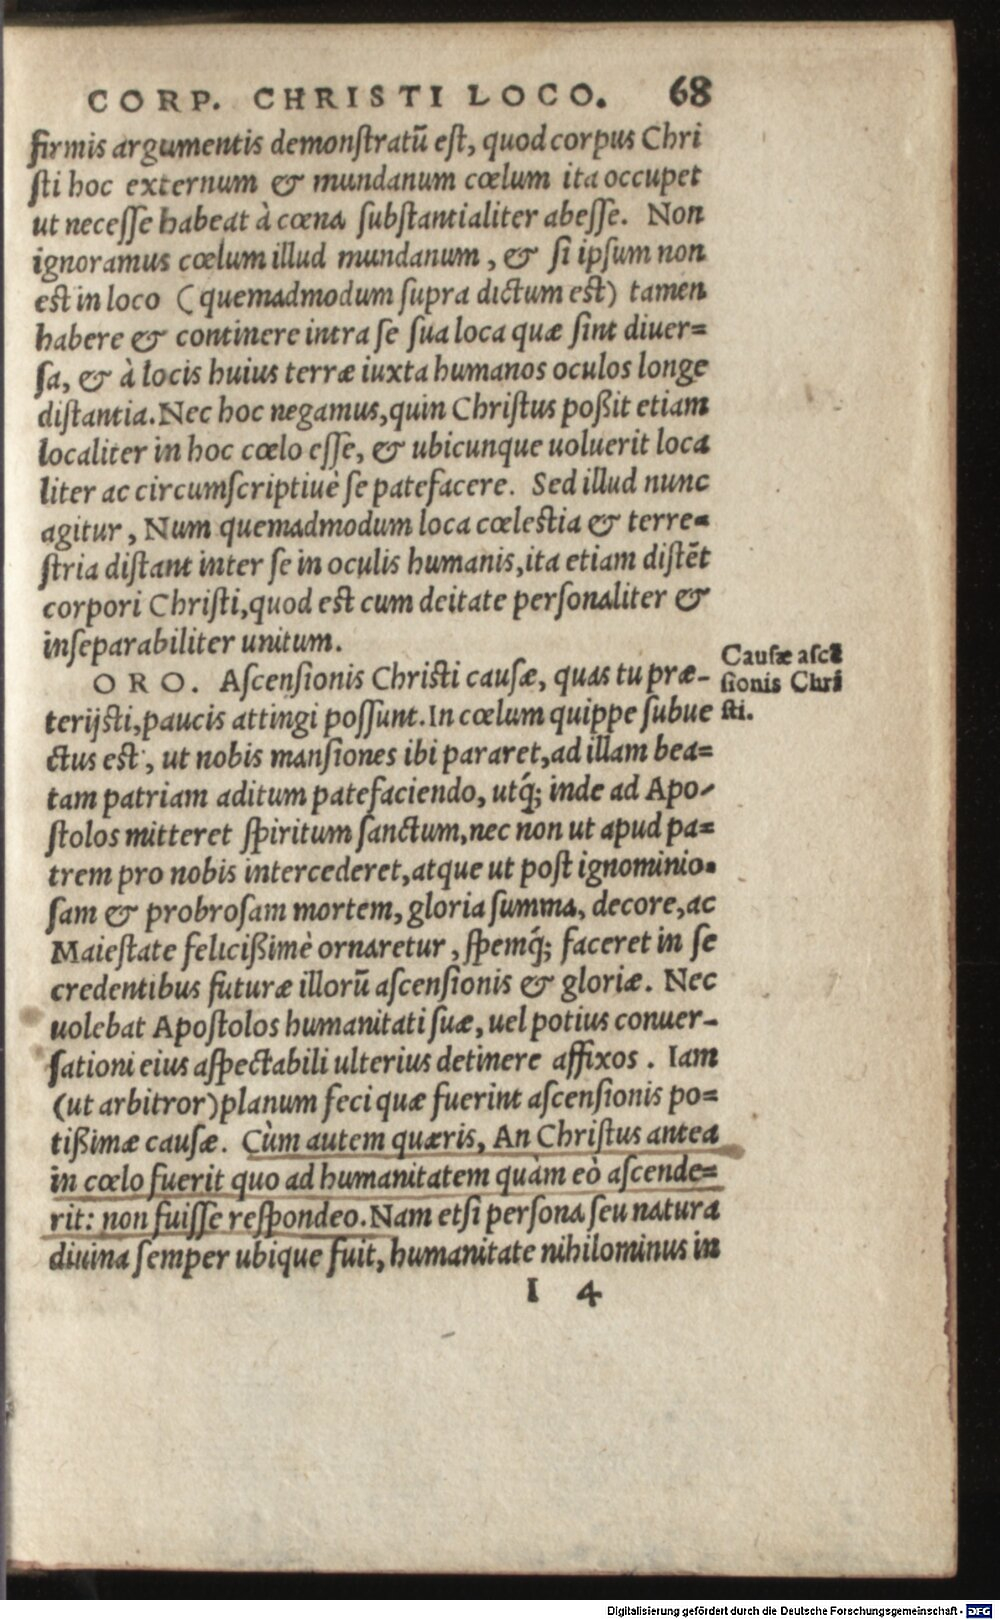 CORP. CHRISTI LOCO. 68
firmis argumentis demonſtratū eſt, quod corpus Chri
ſti hoc externum & mundanum cœlum ita occupet
ut neceſſe habeat à cœna ſubſtantialiter abeſſe. Non
ignoramus cœlum illud mundanum, & ſi ipſum non
eſt in loco (quemadmodum ſupra dictum eſt) tamen
habere & continere intra ſe ſua loca quæ ſint diuer=
ſa, & à locis huius terræ iuxta humanos oculos longe
diſtantia. Nec hoc negamus, quin Chriſtus poßit etiam
localiter in hoc cœlo eſſe, & ubicunque uoluerit loca
liter ac circumſcriptiuè ſe patefacere. Sed illud nunc
agitur, Num quemadmodum loca cœleſtia & terre=
ſtria diſtant inter ſe in oculis humanis, ita etiam diſtēt
corpori Chriſti, quod eſt cum deitate perſonaliter &
inſeparabiliter unitum.
ORO. Aſcenſionis Chriſti cauſæ, quas tu præ-
terijſti, paucis attingi poſſunt. In cœlum quippe ſubue
ctus eſt, ut nobis manſiones ibi pararet, ad illam bea=
tam patriam aditum patefaciendo, utq́; inde ad Apo-
ſtolos mitteret ſpiritum ſanctum, nec non ut apud pa=
trem pro nobis intercederet, atque ut poſt ignominio=
ſam & probroſam mortem, gloria ſumma, decore, ac
Maieſtate felicißimè ornaretur, ſpemq́; faceret in ſe
credentibus futuræ illorū aſcenſionis & gloriæ. Nec
uolebat Apoſtolos humanitati ſuæ, uel potius conuer-
ſationi eius aſpectabili ulterius detinere affixos. Iam
(ut arbitror) planum feci quæ fuerint aſcenſionis po=
tißimæ cauſæ. Cùm autem quæris, An Chriſtus antea
in cœlo fuerit quo ad humanitatem quàm eò aſcende=
rit: non fuiſſe reſpondeo. Nam etſi perſona ſeu natura
diuina ſemper ubique fuit, humanitate nihilominus in
I 4
Cauſæ aſcē
ſionis Chri
ſti.
Digitalisierung gefördert durch die Deutsche Forschungsgemeinschaft - DFG